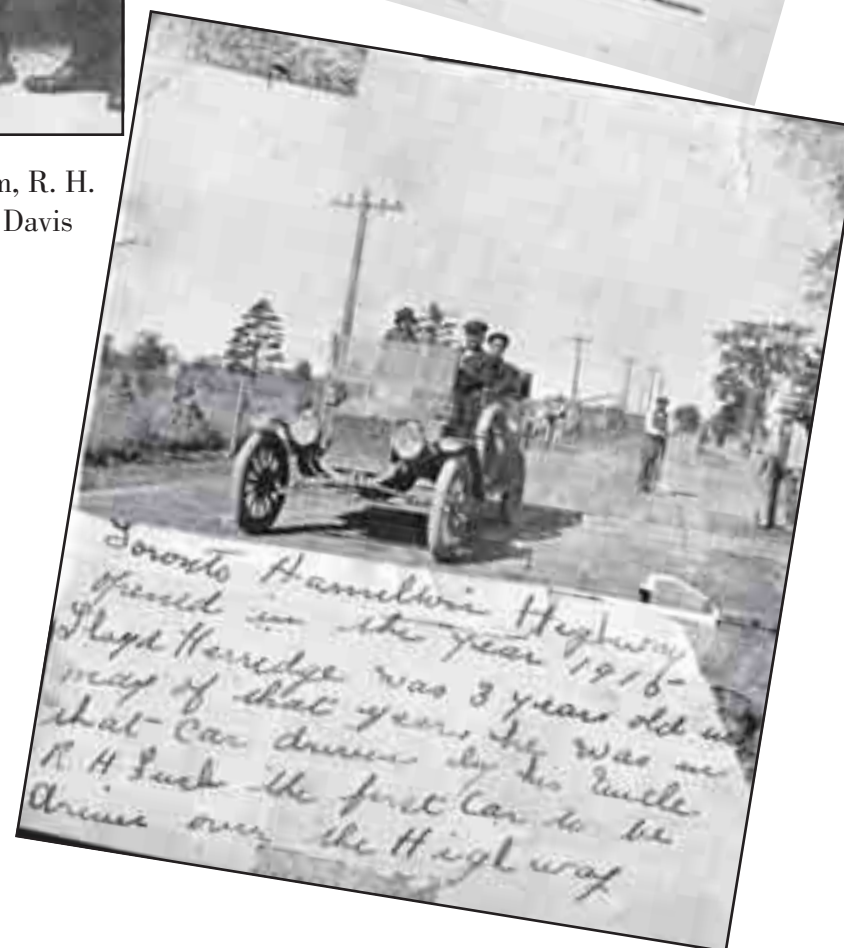 m, R. H.
Davis
Toronto Hamilton Highway
opened in the year 1916
Lloyd Herridge was 3 years old in
may of that year, he was in
that car driven by his Uncle
R H Lush the first Car to be
driven over the Highway